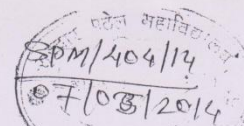 पटेल महाविद्यालय
SPM/404/14
07/03/2014